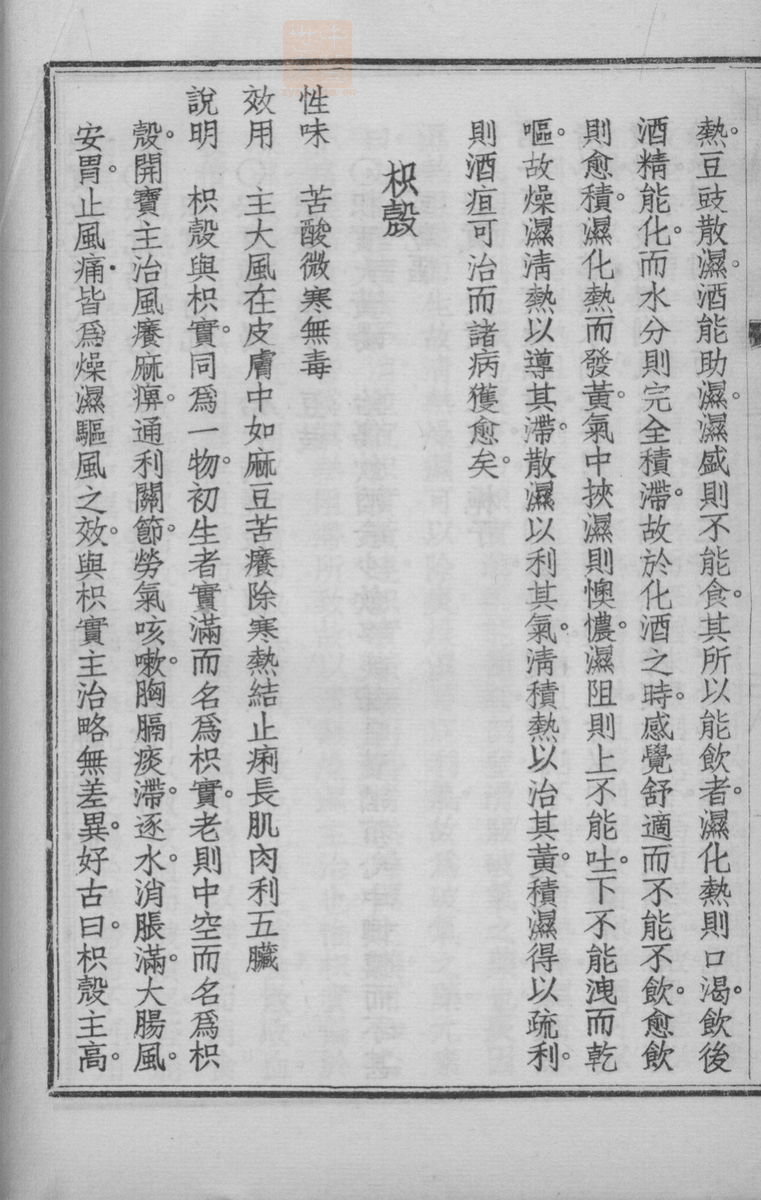 熱。豆豉散濕。酒能助濕。濕盛則不能食。其所以能飲者。濕化熱則口渴。飲後
酒精能化。而水分則完全積滯。故於化酒之時。感覺舒適而不能不飲。愈飲
則愈積。濕化熱而發黃。氣中挾濕則懊憹。濕阻則上不能吐。下不能洩而乾
嘔。故燥濕淸熱以導其滯。散濕以利其氣。淸積熱以治其黃。積濕得以疏利。
則酒疸可治而諸病獲愈矣。
枳殼
性味　苦酸微寒無毒
效用　主大風在皮膚中如麻豆苦癢除寒熱結止痢長肌肉利五臟
說明　枳殼與枳實。同爲一物。初生者實滿而名爲枳實。老則中空而名爲枳
殼。開寶主治風癢麻痹。通利關節。勞氣咳嗽。胸膈痰滯。逐水。消脹滿。大腸風。
安胃。止風痛。皆爲燥濕驅風之效。與枳實主治略無差異。好古曰。枳殼主高。